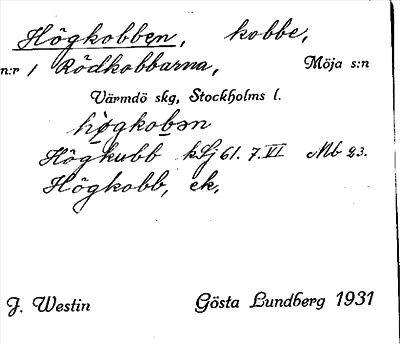 Högkobben, kobbe,
n:r 1 Rödkobbarna, Möja s:n
Värmdö skg, Stockholms l.
högkobən
Högkubb kLj 61. 7.VI Mb 23.
Högkobb, ek.
J. Westin Gösta Lundberg 1931